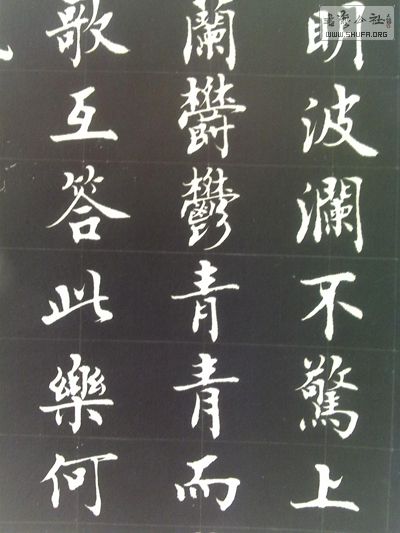 明波瀾不驚上
蘭欝鬱青青而
歌互答此樂何
WWW.SHUFA.ORG